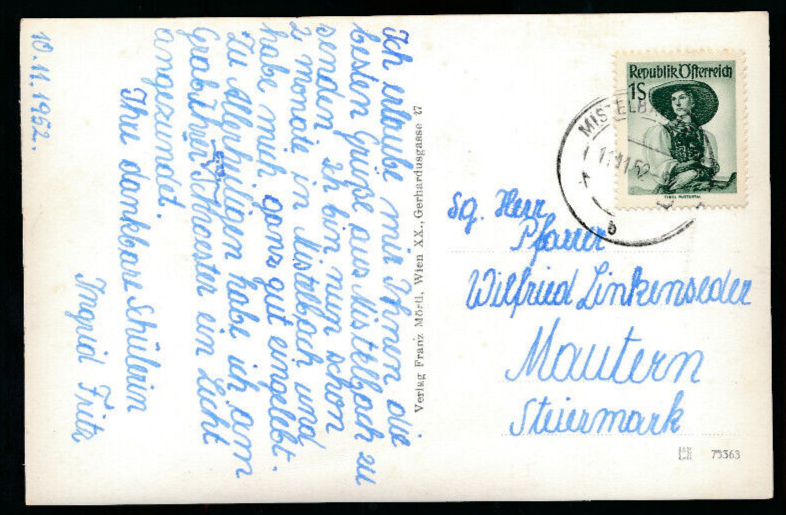 10.11.1952.
Ich erlaube mir Ihnen die
besten Grüße aus Mistelbach zu
senden. Ich bin nun schon
2 monate in Mistelbach und
habe mich ganz gut eingelebt.
Zu Allerheiligen habe ich am
Grab Ihrer Schwester ein Licht
angezündet.
Ihre dankbare Schülerin
Ingrid Fritz
Verlag Franz Mörtl, Wien XX., Gerhardusgasse 27
Republik Österreich
1S
MISTELB
11.11.52
b
Sg. Herr
Pfarrer
Wilfried Linkenseder
Mautern
Steiermark
75363